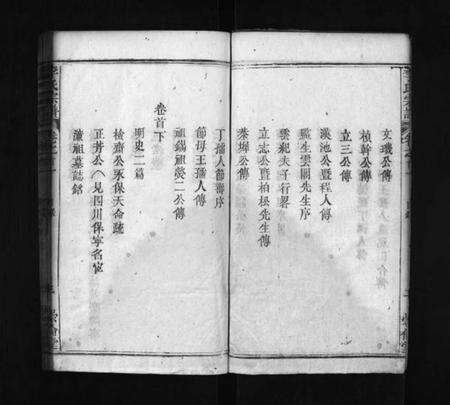 文璣公傳
楨幹公傳
立三公傳
漢池公暨程人傳
職生雲圃先生序
雲杞夫子行畧
立志公暨柏松先生傳
榮埠公傳
丁孺人節壽序
節母王孺人傳
祖錫祖榮二公傳
卷首下
明史二篇
檢齋公永保天命疏
正芳公入見四川保寧名宦
潼祖墓誌銘